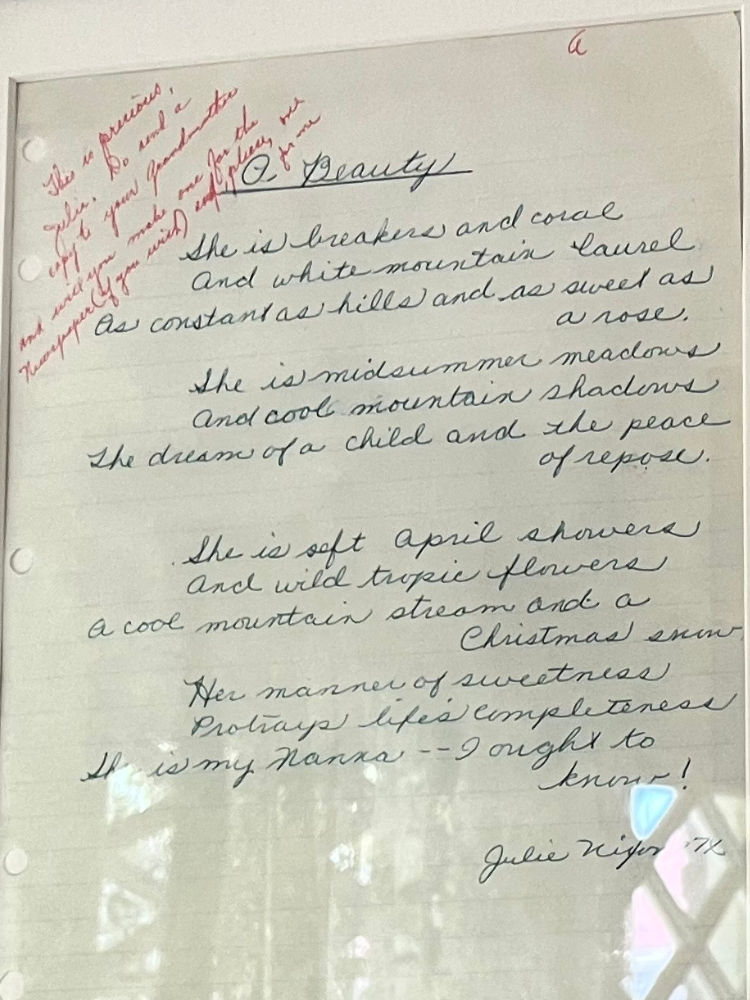 a
This is precious,
Julie. Do send a
copy to your Grandmother
and will you make one for the
Newspaper (if you wish) and please, one
for me
A Beauty
She is breakers and coral
And white mountain laurel
As constant as hills and as sweet as
a rose.
She is midsummer meadows
And cool mountain shadows
The dream of a child and the peace
of repose.
She is soft April showers
And wild tropic flowers
A cool mountain stream and a
Christmas snow.
Her manner of sweetness
Protrays life's completeness
She is my Nanna -- I ought to
know!
Julie Nixon